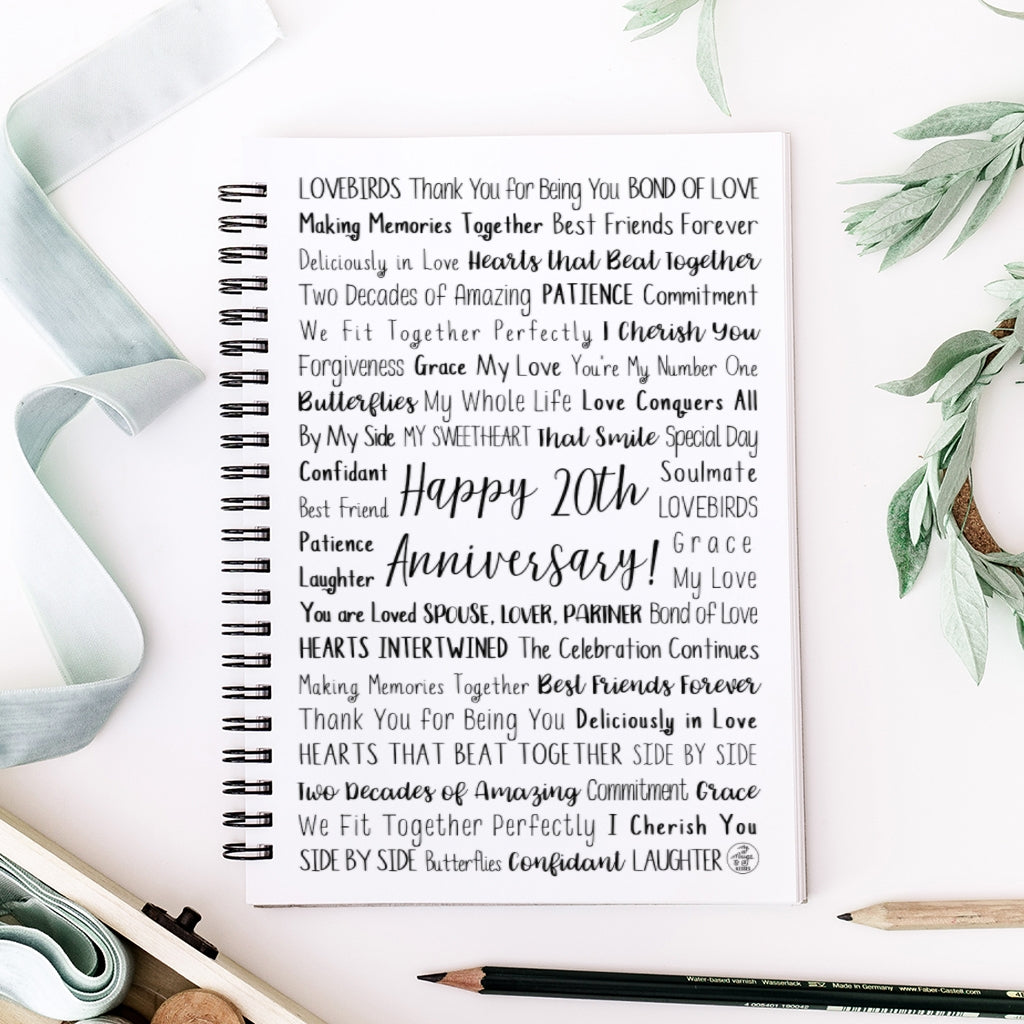 LOVEBIRDS Thank You for Being You BOND OF LOVE
Making Memories Together Best Friends Forever
Deliciously in Love Hearts that Beat Together
Two Decades of Amazing PATIENCE Commitment
We Fit Together Perfectly I Cherish You
Forgiveness Grace My Love You're My Number One
Butterflies My Whole Life Love Conquers All
By My Side MY SWEETHEART That Smile Special Day
Confidant Soulmate
Best Friend LOVEBIRDS
Happy 20th
Patience Grace
Laughter My Love
Anniversary!
You are Loved SPOUSE, LOVER, PARTNER Bond of Love
HEARTS INTERTWINED The Celebration Continues
Making Memories Together Best Friends Forever
Thank You for Being You Deliciously in Love
HEARTS THAT BEAT TOGETHER SIDE BY SIDE
Two Decades of Amazing Commitment Grace
We Fit Together Perfectly I Cherish You
SIDE BY SIDE Butterflies Confidant LAUGHTER
Water-based varnish Wasserlack Made in Germany www.Faber-Castell.com
4 005401 190042